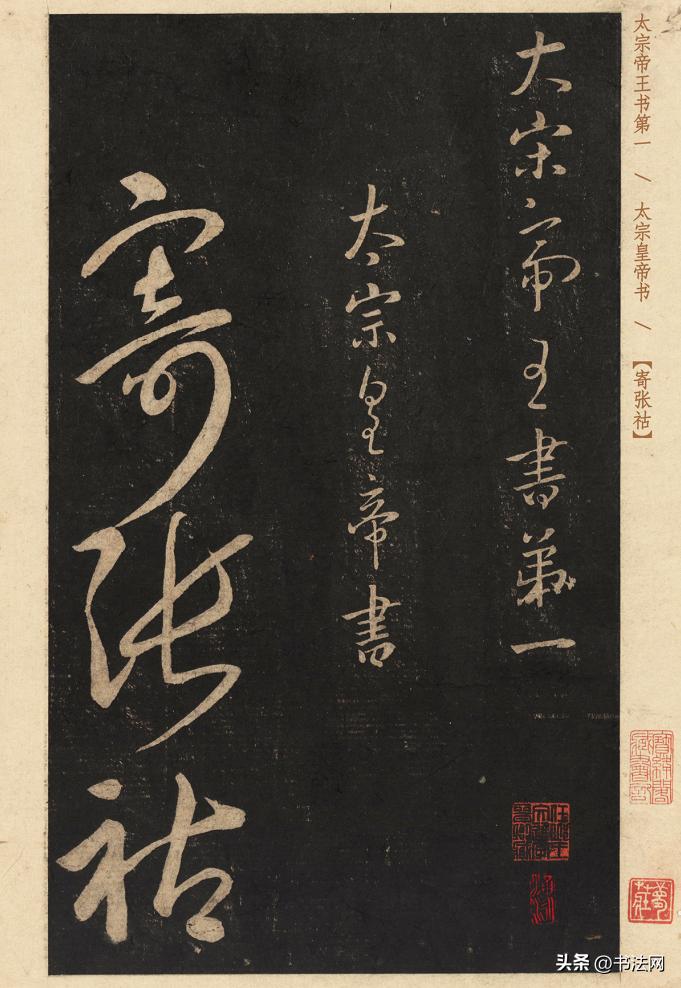 太宗帝王书第一 \ 太宗皇帝书 \ 【寄张祜】
大宋帝王書第一
太宗皇帝書
寄張祜
头条 @书法网